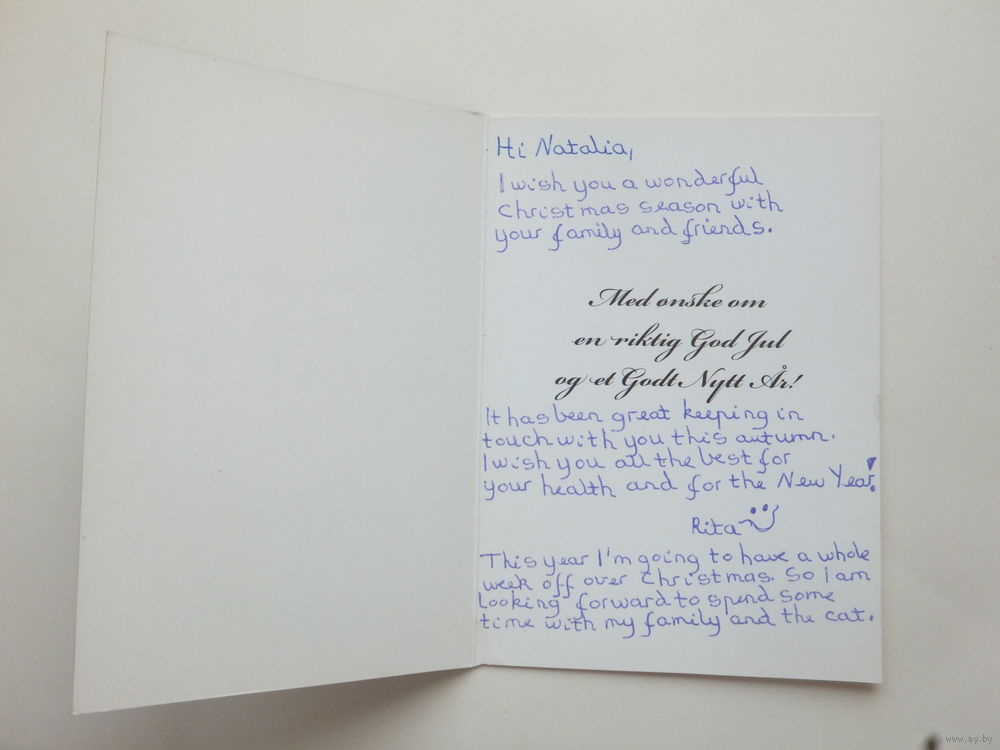 Hi Natalia,
I wish you a wonderful
Christmas season with
your family and friends.
Med ønske om
en riktig God Jul
og et Godt Nytt År!
It has been great keeping in
touch with you this autumn.
I wish you all the best for
your health and for the New Year!
Rita
This year I'm going to have a whole
week off over Christmas. So I am
Looking forward to spend some
time with my family and the cat.
www.ay.by